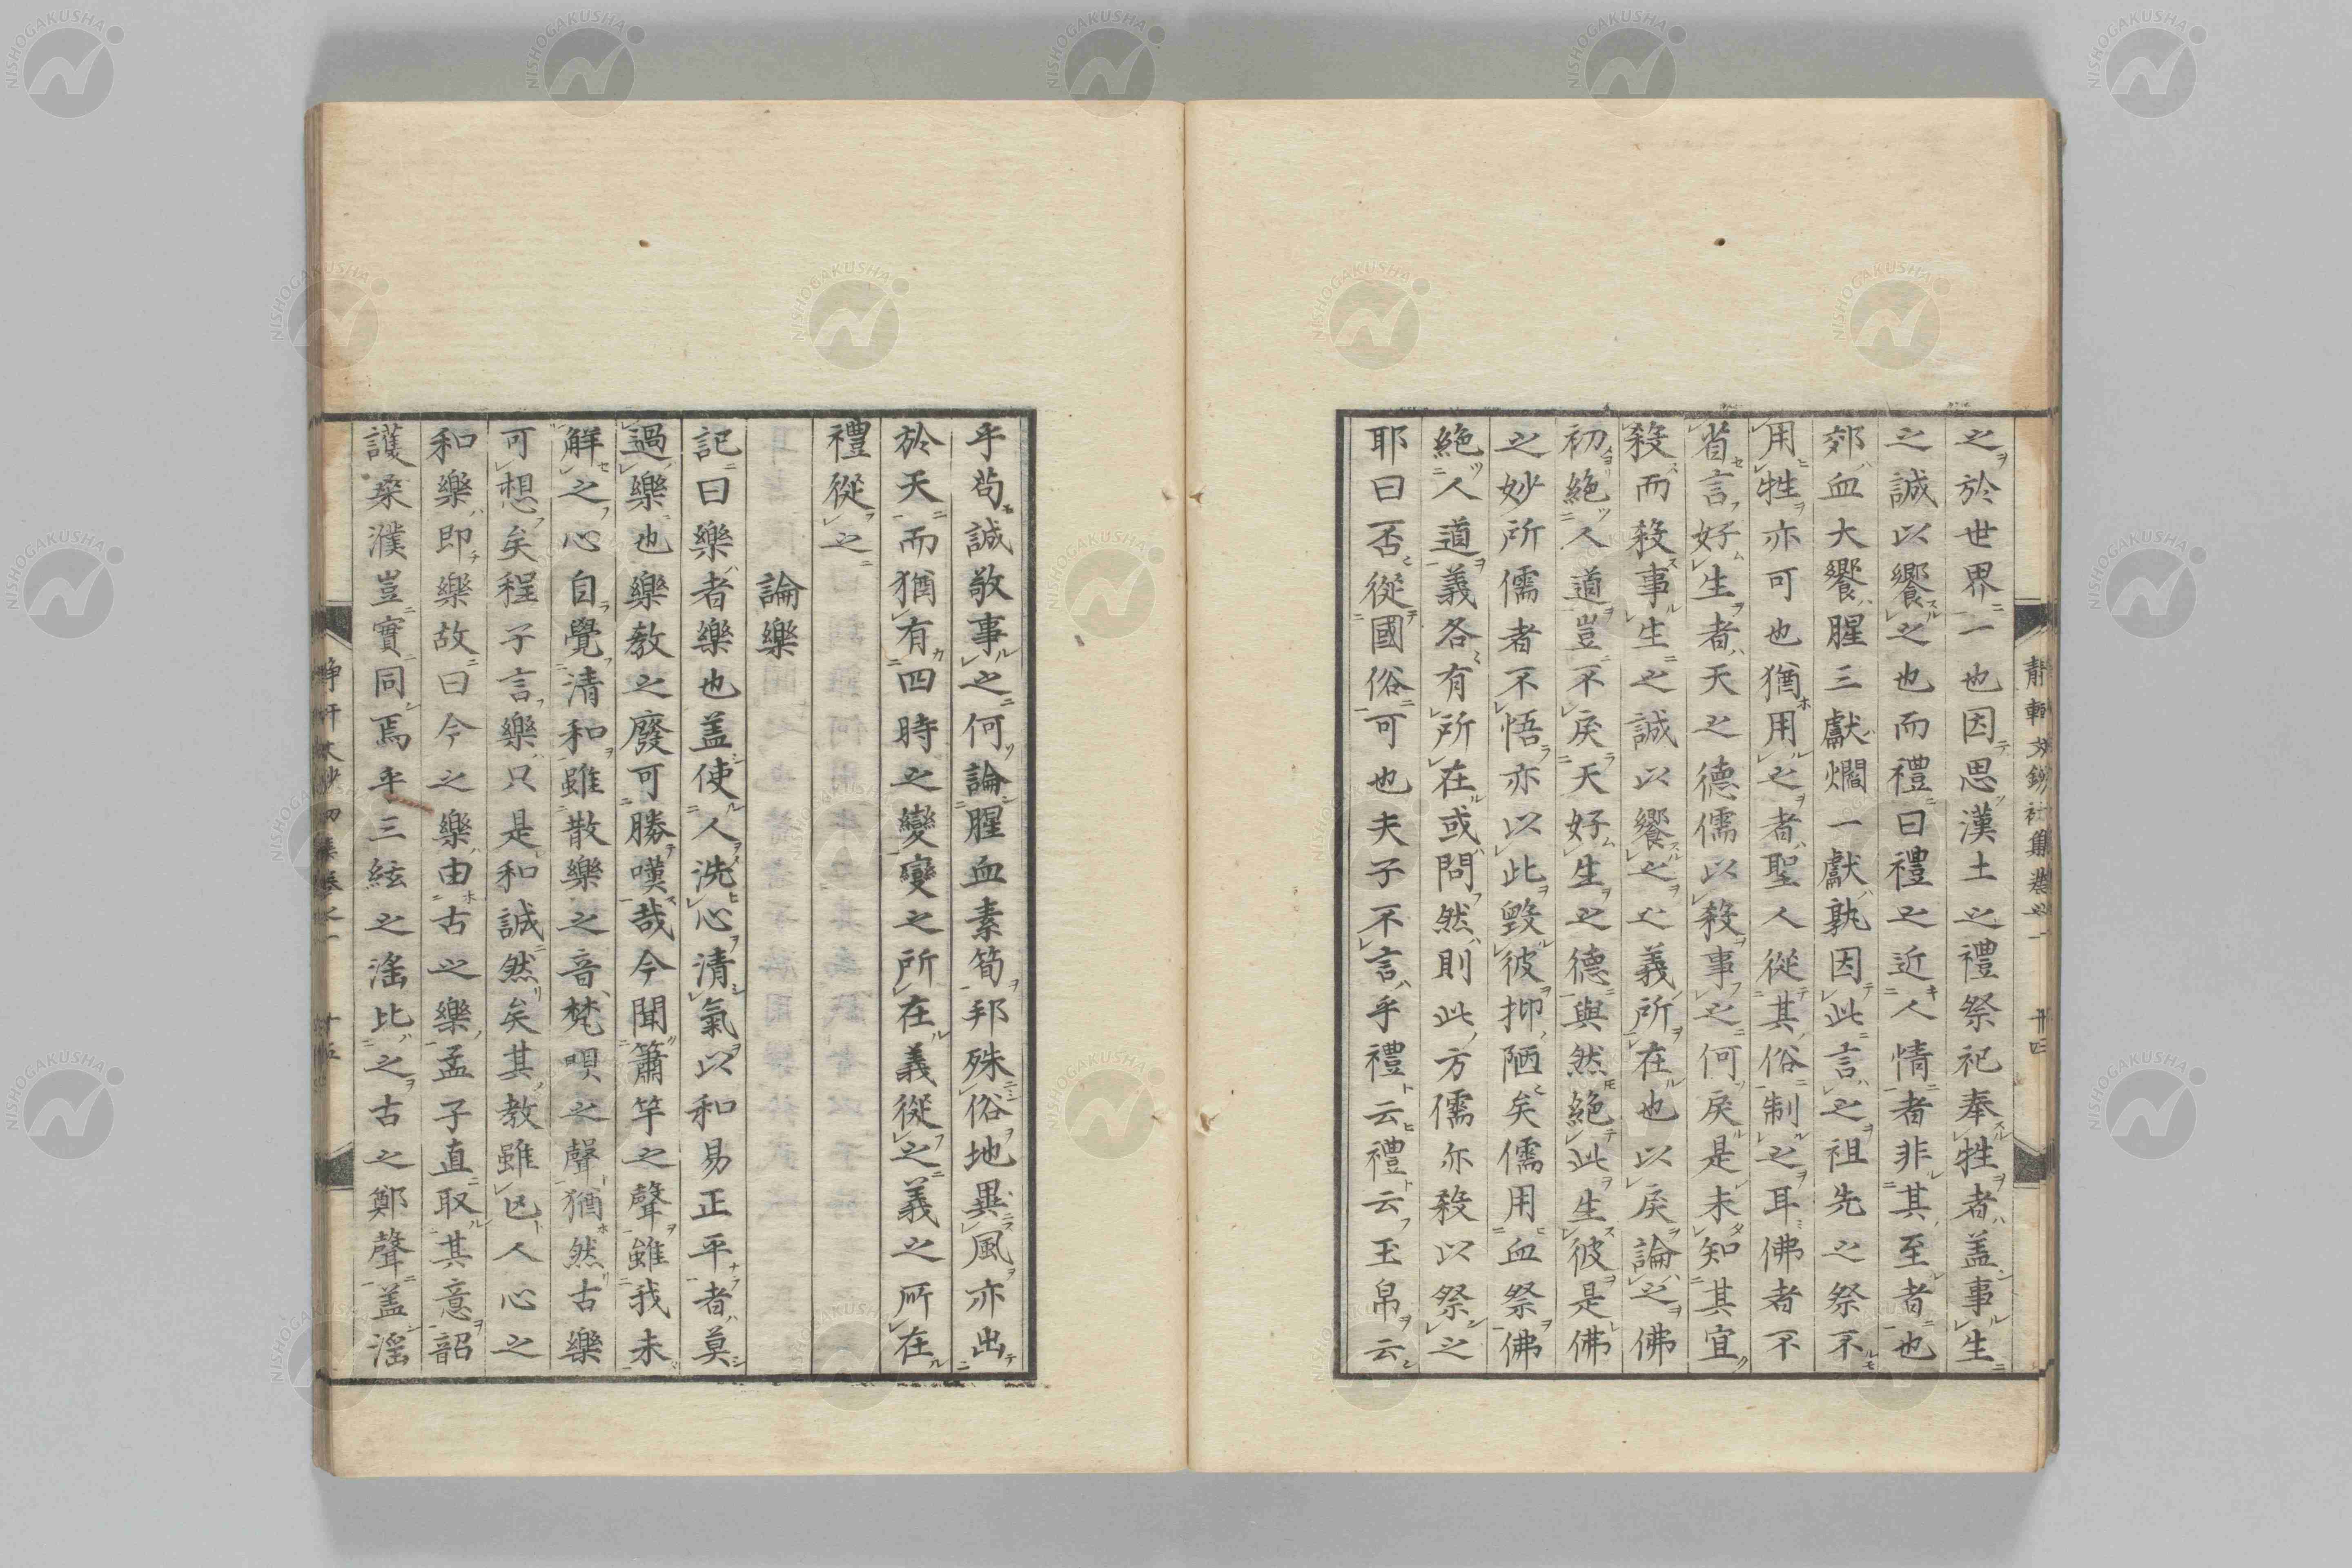 之於世界一也因思漢土之禮祭祀奉牲者盖事生
之誠以饗之也而禮曰禮之近人情者非其至者也
郊血大饗腥三獻爓一獻孰因此言之祖先之祭不
用牲亦可也猶用之者聖人從其俗制之耳佛者不
省言好生者天之德儒以殺事之何戾是未知其宜
殺而殺事生之誠以饗之之義所在也以戾論之佛
初絶人道豈不戾天好生之德與然絶此生彼是佛
之妙所儒者不悟亦以此毀彼抑陋矣儒用血祭佛
絶人道義各有所在或問然則此方儒亦殺以祭之
耶曰否從國俗可也夫子不言乎禮云禮云玉帛云
乎苟誠敬事之何論腥血素筍邦殊俗地異風亦出
於天而猶有四時之變變之所在義從之義之所在
禮從之
論樂
記曰樂者樂也盖使人洗心清氣以和易正平者莫
過樂也樂教之廢可勝嘆哉今聞簫竽之聲雖我未
解之心自覺清和雖散樂之音梵唄之聲猶然古樂
可想矣程子言樂只是和誠然矣其教雖已人心之
和樂即樂故曰今之樂由古之樂孟子直取其意韶
護桑濮豈實同焉乎三絃之滛比之古之鄭聲盖滛
靜軒文鈔初集卷之一 十四
十五
NISHOGAKUSHA